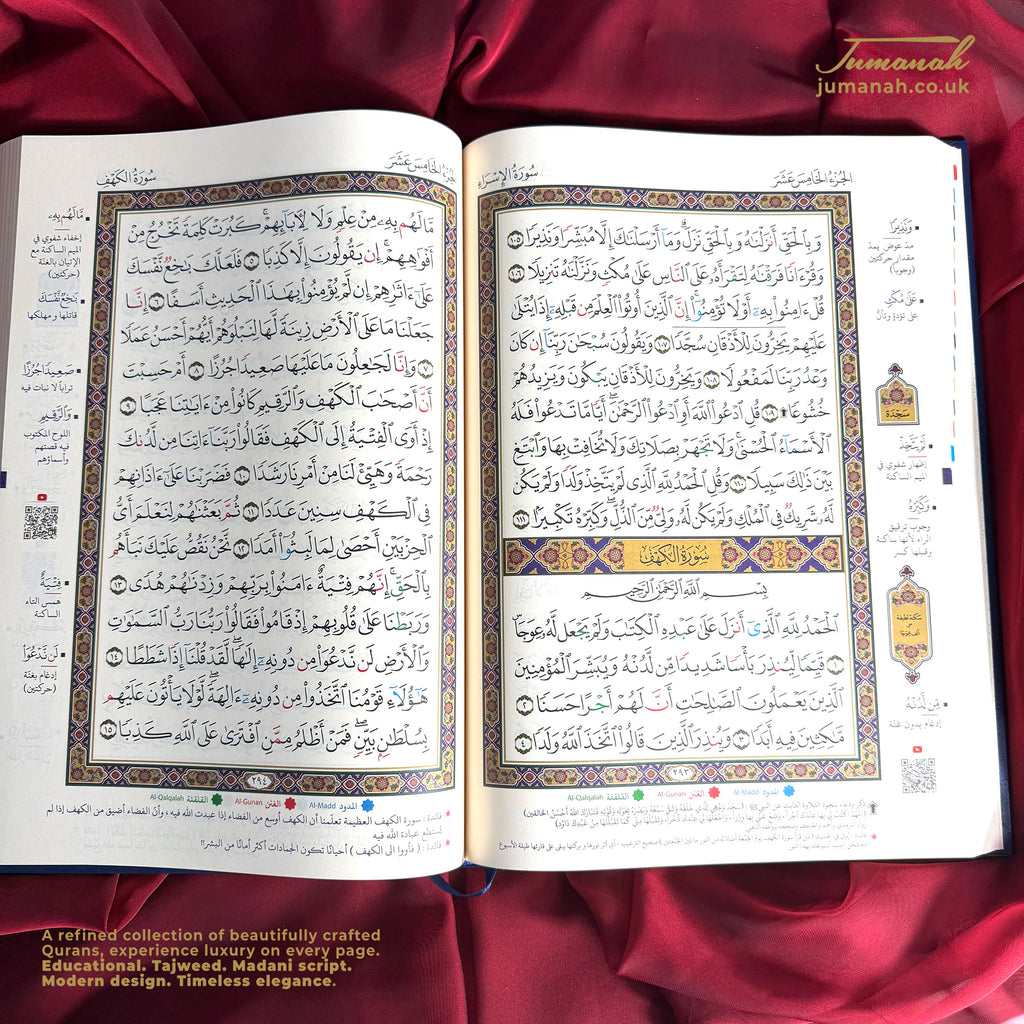 Jumanah
jumanah.co.uk
الجزء الخامس عشر
سورة الإسراء
وَبِٱلْحَقِّ أَنزَلْنَٰهُ وَبِٱلْحَقِّ نَزَلَ ۗ وَمَآ أَرْسَلْنَٰكَ إِلَّا مُبَشِّرًا وَنَذِيرًا ١٠٥
وَقُرْءَانًا فَرَقْنَٰهُ لِتَقْرَأَهُۥ عَلَى ٱلنَّاسِ عَلَىٰ مُكْثٍ وَنَزَّلْنَٰهُ تَنزِيلًا ١٠٦
قُلْ ءَامِنُوا۟ بِهِۦٓ أَوْ لَا تُؤْمِنُوٓا۟ ۚ إِنَّ ٱلَّذِينَ أُوتُوا۟ ٱلْعِلْمَ مِن قَبْلِهِۦٓ إِذَا يُتْلَىٰ
عَلَيْهِمْ يَخِرُّونَ لِلْأَذْقَانِ سُجَّدًا ١٠٧ وَيَقُولُونَ سُبْحَٰنَ رَبِّنَآ إِن كَانَ
وَعْدُ رَبِّنَا لَمَفْعُولًا ١٠٨ وَيَخِرُّونَ لِلْأَذْقَانِ يَبْكُونَ وَيَزِيدُهُمْ
خُشُوعًا ۩ ١٠٩ قُلِ ٱدْعُوا۟ ٱللَّهَ أَوِ ٱدْعُوا۟ ٱلرَّحْمَٰنَ ۖ أَيًّا مَّا تَدْعُوا۟ فَلَهُ
ٱلْأَسْمَآءُ ٱلْحُسْنَىٰ ۚ وَلَا تَجْهَرْ بِصَلَاتِكَ وَلَا تُخَافِتْ بِهَا وَٱبْتَغِ
بَيْنَ ذَٰلِكَ سَبِيلًا ١١٠ وَقُلِ ٱلْحَمْدُ لِلَّهِ ٱلَّذِى لَمْ يَتَّخِذْ وَلَدًا وَلَمْ يَكُن
لَّهُۥ شَرِيكٌ فِى ٱلْمُلْكِ وَلَمْ يَكُن لَّهُۥ وَلِىٌّ مِّنَ ٱلذُّلِّ ۖ وَكَبِّرْهُ تَكْبِيرًۢا ١١١
سورة الكهف
بِسْمِ ٱللَّهِ ٱلرَّحْمَٰنِ ٱلرَّحِيمِ
ٱلْحَمْدُ لِلَّهِ ٱلَّذِىٓ أَنزَلَ عَلَىٰ عَبْدِهِ ٱلْكِتَٰبَ وَلَمْ يَجْعَل لَّهُۥ عِوَجَا
١ قَيِّمًا لِّيُنذِرَ بَأْسًا شَدِيدًا مِّن لَّدُنْهُ وَيُبَشِّرَ ٱلْمُؤْمِنِينَ
ٱلَّذِينَ يَعْمَلُونَ ٱلصَّٰلِحَٰتِ أَنَّ لَهُمْ أَجْرًا حَسَنًا ٢
مَّٰكِثِينَ فِيهِ أَبَدًا ٣ وَيُنذِرَ ٱلَّذِينَ قَالُوا۟ ٱتَّخَذَ ٱللَّهُ وَلَدًا ٤
٢٩٣
وَنَذِيرًا
مد عوض يمد
مقدار حركتين
(وجوبا)
عَلَىٰ مُكْثٍ
على تؤدة وتأن
سجدة
لَمْ يَتَّخِذْ
إظهار شفوي في
الميم الساكنة
وَكَبِّرْهُ
وجوب ترقيق
الراء لأنها ساكنة
وقبلها كسر
سكتة لطيفة
على
ألف عوجا
مِّن لَّدُنْهُ
إدغام بدون غنة
Al-Madd المدود Al-Gunan الغنن Al-Qalqalah القلقلة
الجزء الخامس عشر
سورة الكهف
مَّا لَهُم بِهِۦ مِنْ عِلْمٍ وَلَا لِءَابَآئِهِمْ ۚ كَبُرَتْ كَلِمَةً تَخْرُجُ مِنْ
أَفْوَٰهِهِمْ ۚ إِن يَقُولُونَ إِلَّا كَذِبًا ٥ فَلَعَلَّكَ بَٰخِعٌ نَّفْسَكَ
عَلَىٰٓ ءَاثَٰرِهِمْ إِن لَّمْ يُؤْمِنُوا۟ بِهَٰذَا ٱلْحَدِيثِ أَسَفًا ٦ إِنَّا
جَعَلْنَا مَا عَلَى ٱلْأَرْضِ زِينَةً لَّهَا لِنَبْلُوَهُمْ أَيُّهُمْ أَحْسَنُ عَمَلًا
٧ وَإِنَّا لَجَٰعِلُونَ مَا عَلَيْهَا صَعِيدًا جُرُزًا ٨ أَمْ حَسِبْتَ
أَنَّ أَصْحَٰبَ ٱلْكَهْفِ وَٱلرَّقِيمِ كَانُوا۟ مِنْ ءَايَٰتِنَا عَجَبًا ٩
إِذْ أَوَى ٱلْفِتْيَةُ إِلَى ٱلْكَهْفِ فَقَالُوا۟ رَبَّنَآ ءَاتِنَا مِن لَّدُنكَ
رَحْمَةً وَهَيِّئْ لَنَا مِنْ أَمْرِنَا رَشَدًا ١٠ فَضَرَبْنَا عَلَىٰٓ ءَاذَانِهِمْ
فِى ٱلْكَهْفِ سِنِينَ عَدَدًا ١١ ثُمَّ بَعَثْنَٰهُمْ لِنَعْلَمَ أَىُّ
ٱلْحِزْبَيْنِ أَحْصَىٰ لِمَا لَبِثُوٓا۟ أَمَدًا ١٢ نَّحْنُ نَقُصُّ عَلَيْكَ نَبَأَهُم
بِٱلْحَقِّ ۚ إِنَّهُمْ فِتْيَةٌ ءَامَنُوا۟ بِرَبِّهِمْ وَزِدْنَٰهُمْ هُدًى ١٣
وَرَبَطْنَا عَلَىٰ قُلُوبِهِمْ إِذْ قَامُوا۟ فَقَالُوا۟ رَبُّنَا رَبُّ ٱلسَّمَٰوَٰتِ
وَٱلْأَرْضِ لَن نَّدْعُوَا۟ مِن دُونِهِۦٓ إِلَٰهًا ۖ لَّقَدْ قُلْنَآ إِذًا شَطَطًا ١٤
هَٰٓؤُلَآءِ قَوْمُنَا ٱتَّخَذُوا۟ مِن دُونِهِۦٓ ءَالِهَةً ۖ لَّوْلَا يَأْتُونَ عَلَيْهِم
بِسُلْطَٰنٍۭ بَيِّنٍ ۖ فَمَنْ أَظْلَمُ مِمَّنِ ٱفْتَرَىٰ عَلَى ٱللَّهِ كَذِبًا ١٥
٢٩٤
مَّا لَهُم بِهِۦ
إخفاء شفوي في
الميم الساكنة مع
الإتيان بالغنة
(حركتين)
بَٰخِعٌ نَّفْسَكَ
قاتلها و مهلكها
صَعِيدًا جُرُزًا
تراباً لا نبات فيه
وَٱلرَّقِيمِ
اللوح المكتوب
فيه قصتهم
وأسماؤهم
فِتْيَةٌ
همس التاء
الساكنة
لَن نَّدْعُوَا۟
إدغام بغنة
(حركتين)
Al-Madd المدود Al-Gunan الغنن Al-Qalqalah القلقلة
فائدة : سورة الكهف العظيمة تعلّمنا أن الكهف أوسع من الفضاء إذا عبدت الله فيه ، وأنّ الفضاء أضيق من الكهف إذا لم
تستطع عبادة الله فيه
فائدة : ( فأووا الى الكهف ) أحيانًا تكون الجمادات أكثر أمانًا من البشر!!
A refined collection of beautifully crafted
Qurans, experience luxury on every page.
Educational. Tajweed. Madani script.
Modern design. Timeless elegance.